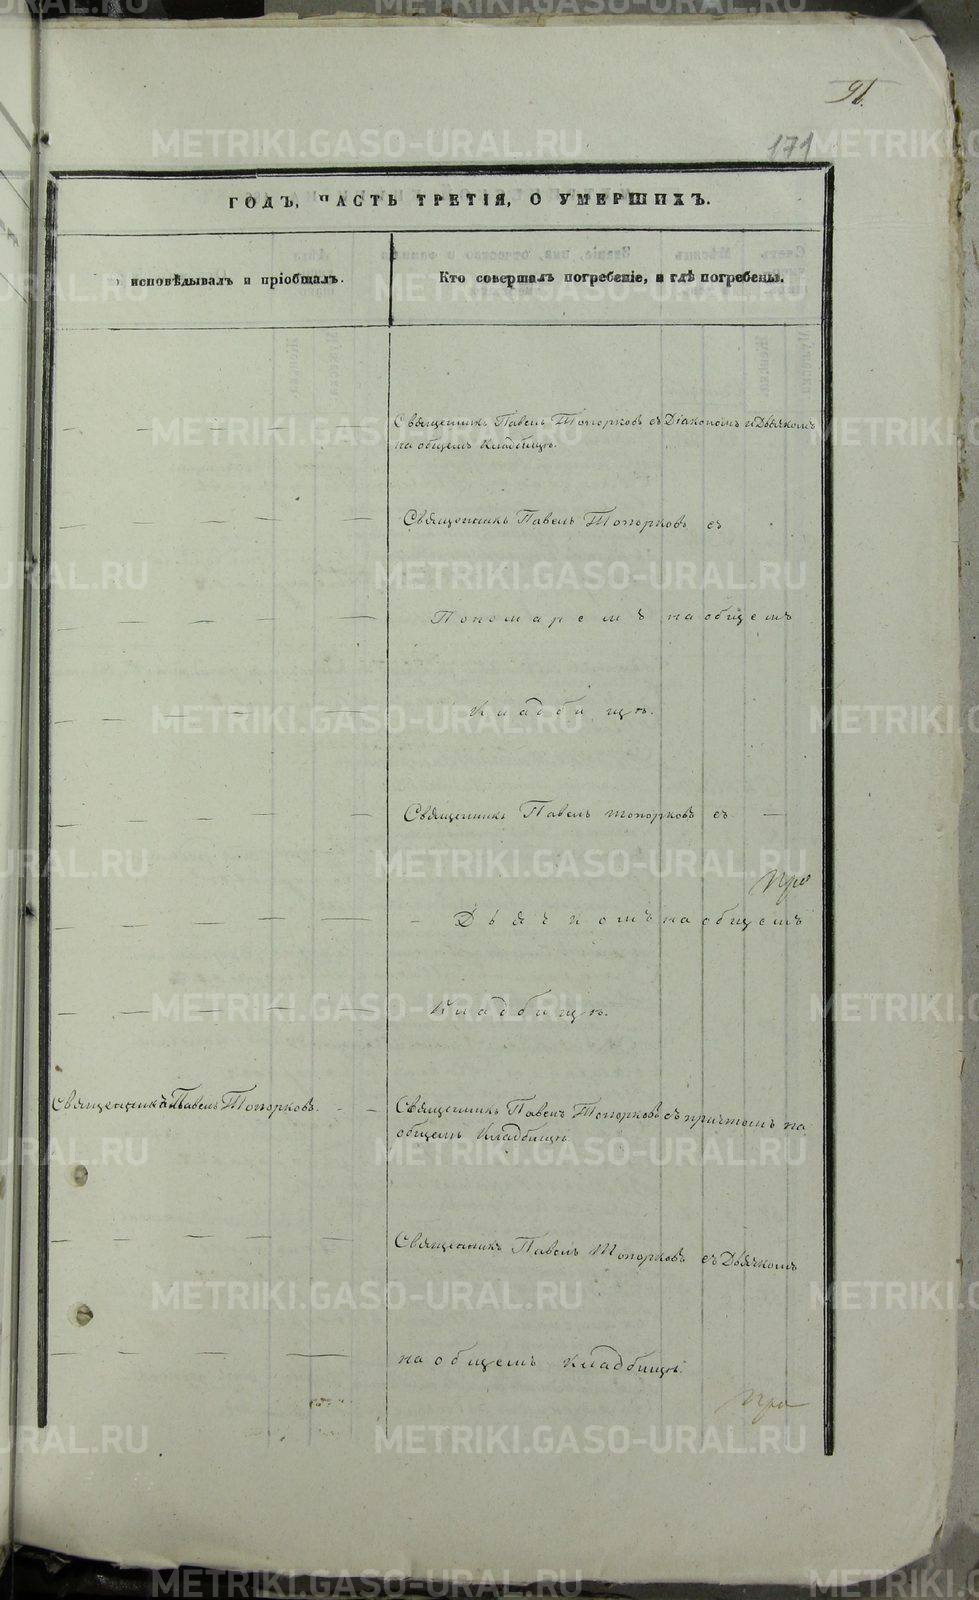 91.
171
ГОДЪ, ЧАСТЬ ТРЕТІЯ, О УМЕРШИХЪ.
исповѣдывалъ и пріобщалъ.
Кто совершалъ погребеніе, и гдѣ погребены.
Священникъ Павелъ Топорковъ съ Діакономъ и Дьячкомъ
на общемъ Кладбищѣ.
Священникъ Павелъ Топорковъ съ
Пономаремъ на общемъ
Кладбищѣ.
Священникъ Павелъ Топорковъ съ —
Дьячкомъ на общемъ
Кладбищѣ.
Священникъ Павелъ Топорковъ. - -
Священникъ Павелъ Топорковъ съ причтомъ на
общемъ Кладбищѣ.
Священникъ Павелъ Топорковъ съ Дьячкомъ
на общемъ Кладбищѣ.
METRIKI.GASO-URAL.RU